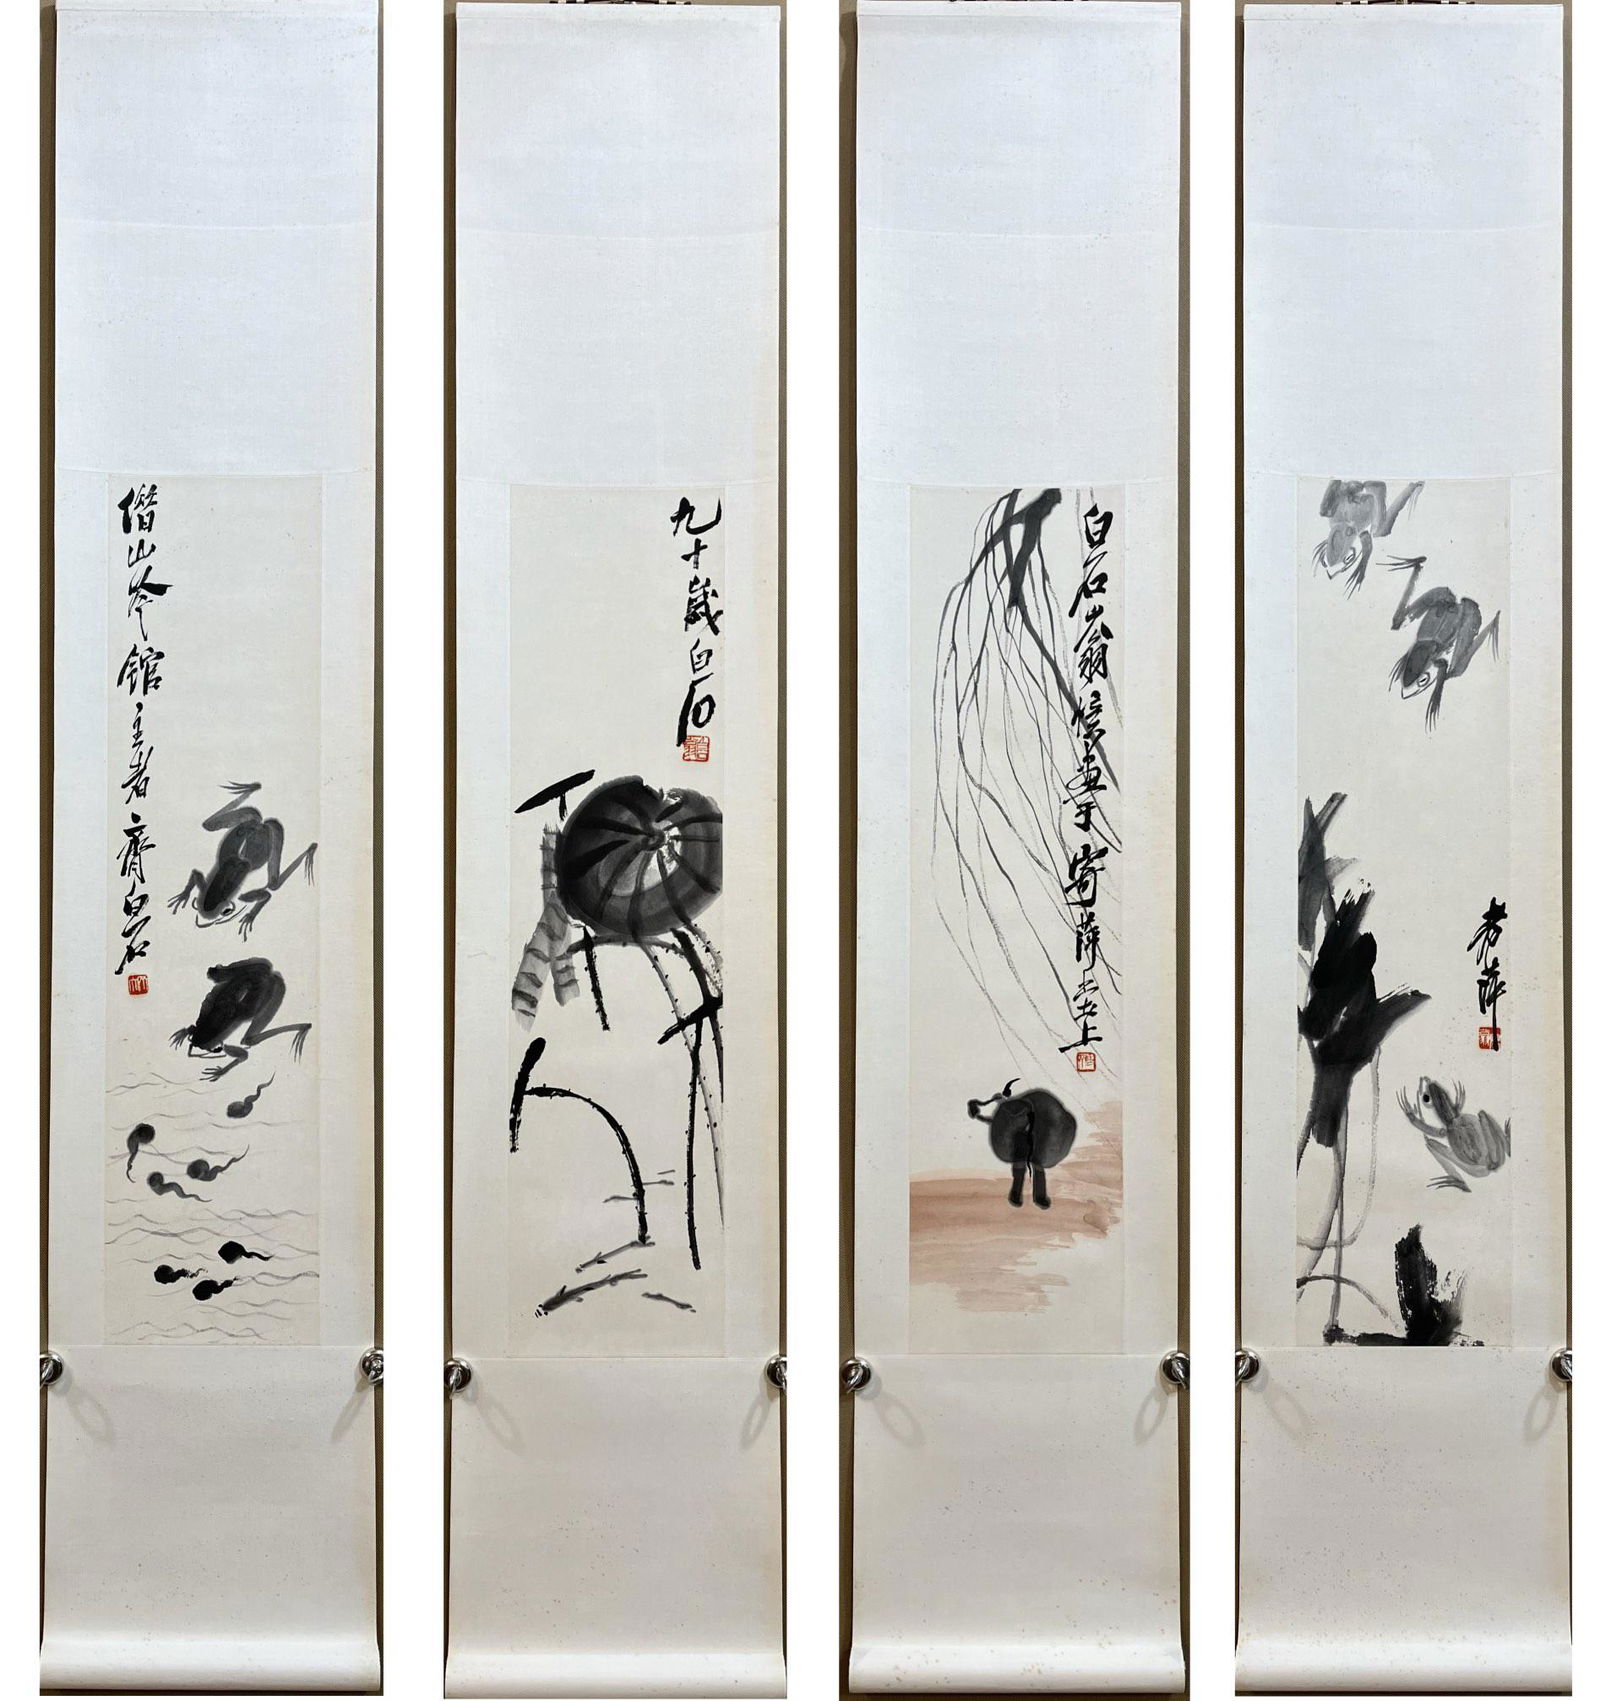 借山吟館主者齊白石
九十歲白石
白石山翁憶畫于寄萍堂上
老萍